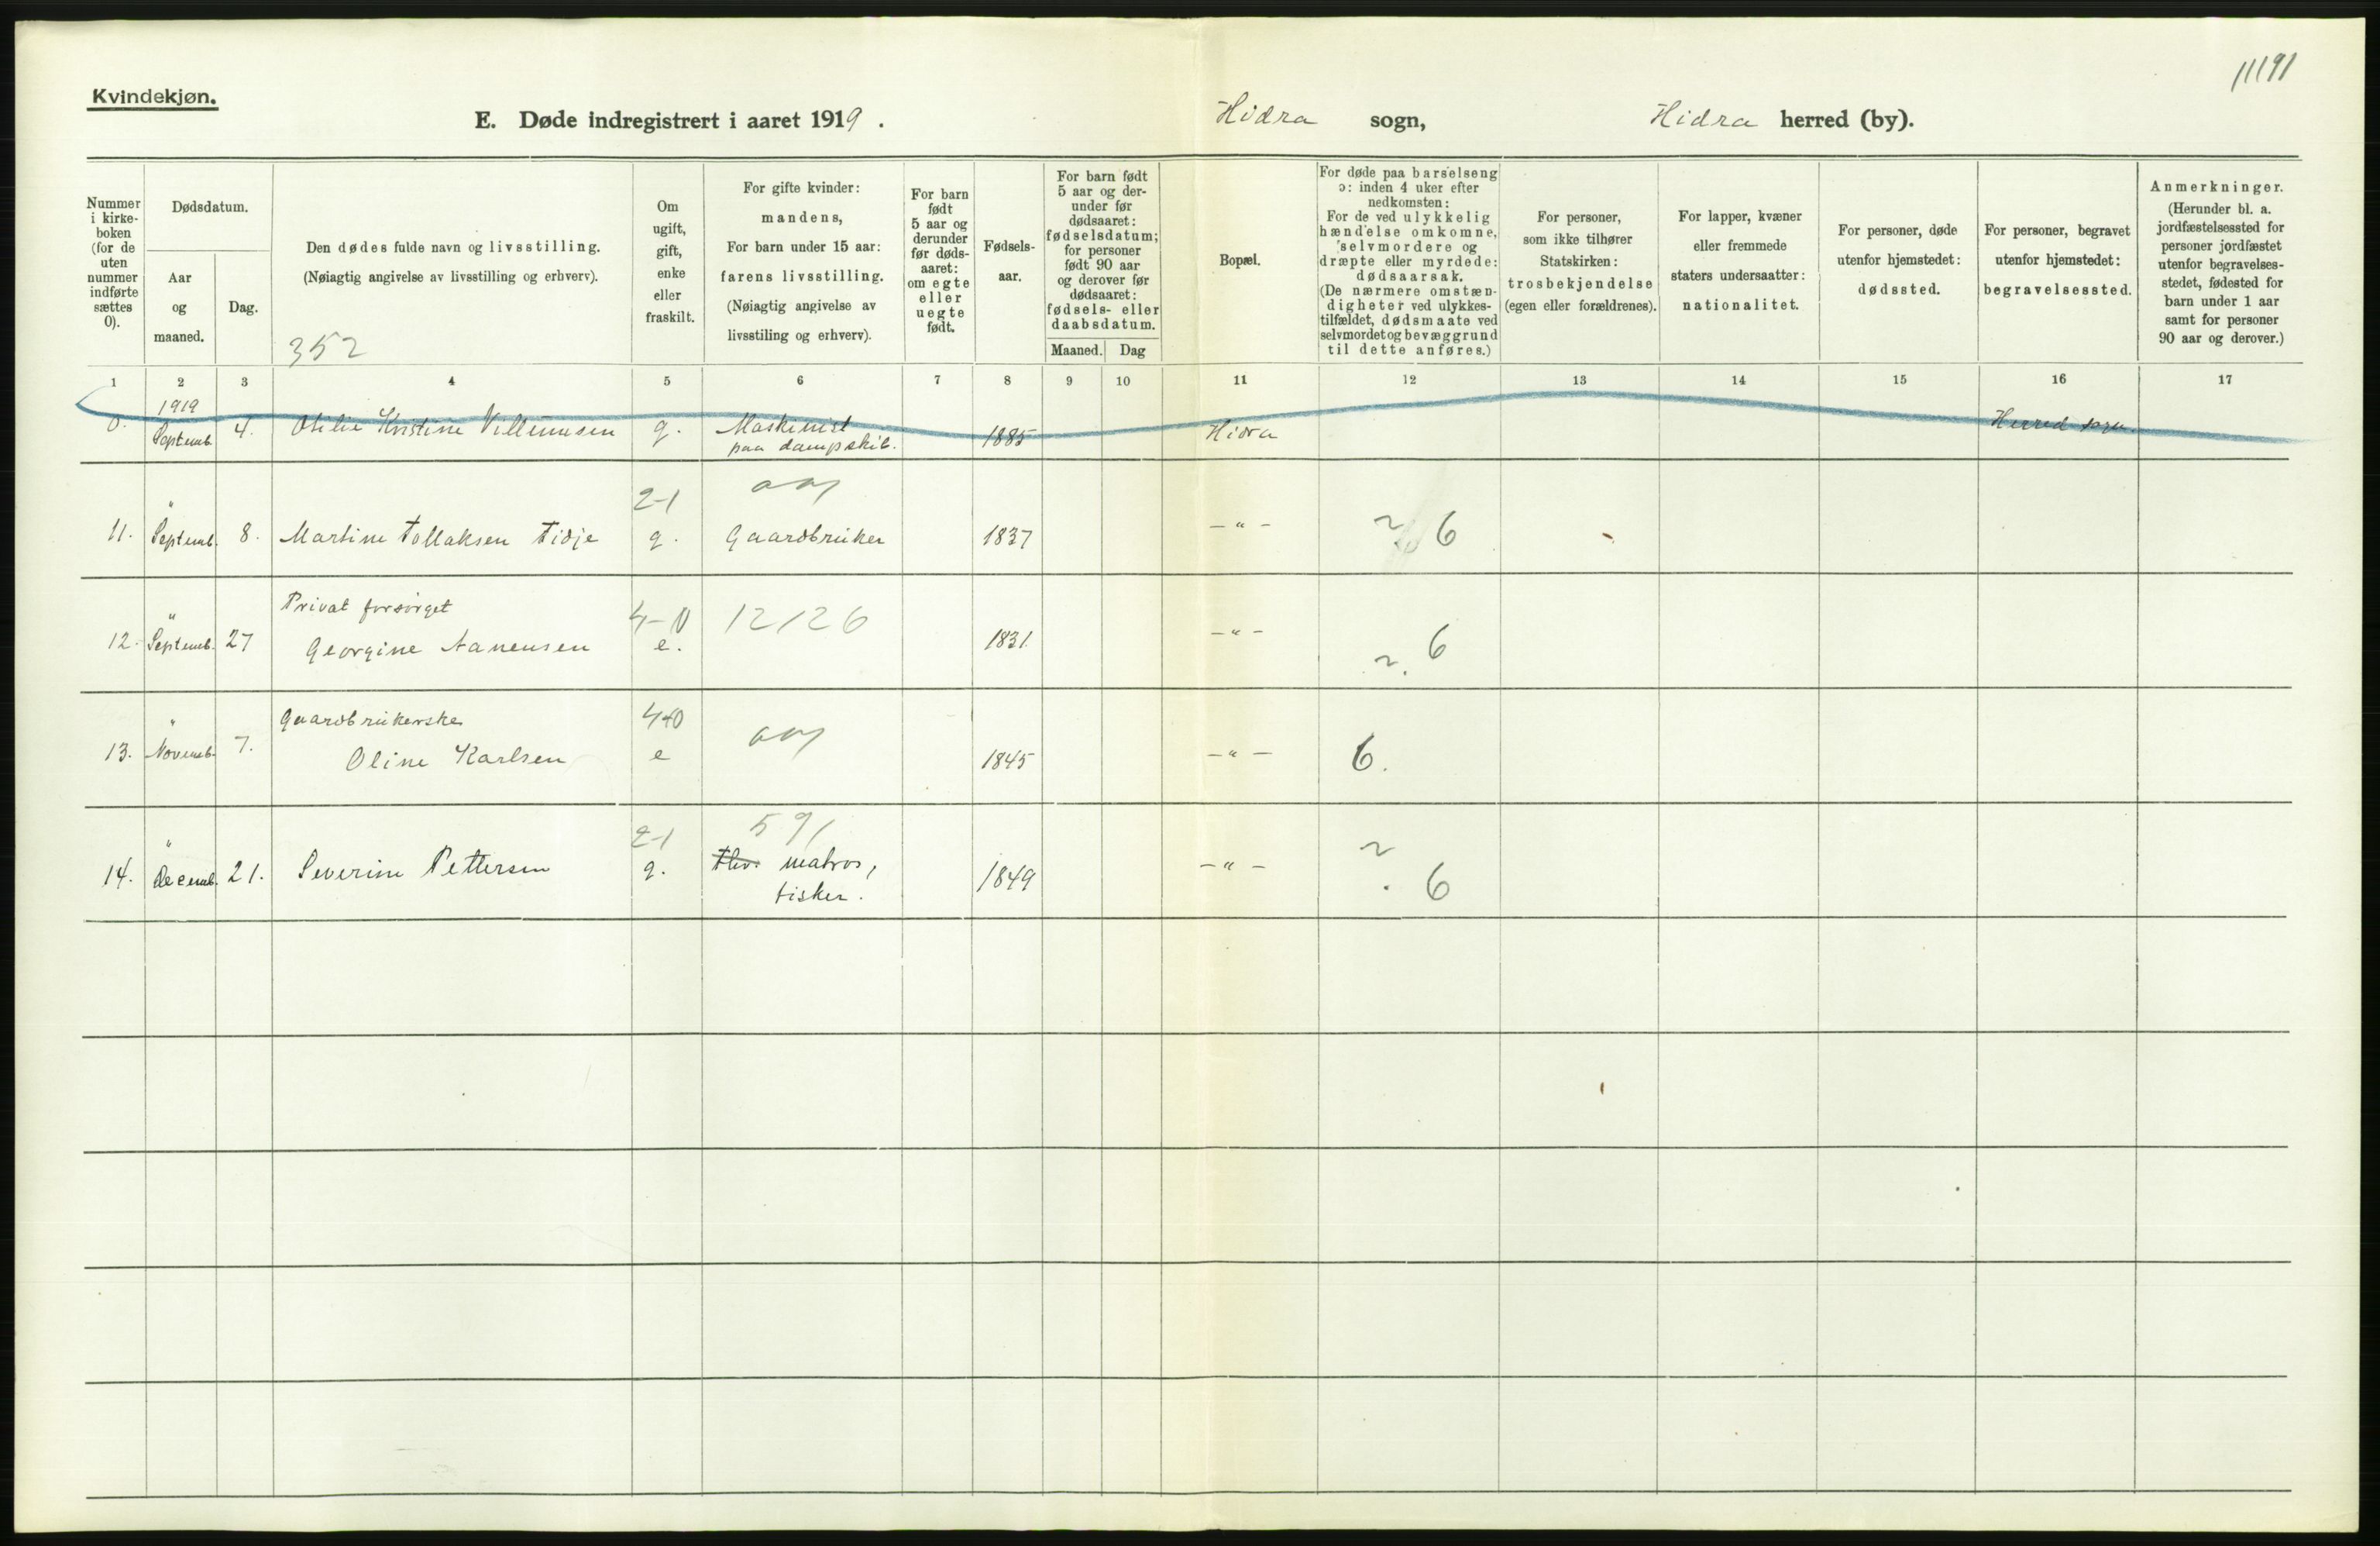 11191
Kvindekjøn.
E. Døde indregistrert i aaret 1919.
Hidra sogn,
Hidra herred (by).
Nummer
i kirke-
boken
(for de
uten
nummer
indførte
sættes
0).
Dødsdatum.
Aar
og
maaned.
Dag.
Den dødes fulde navn og livsstilling.
(Nøiagtig angivelse av livsstilling og erhverv).
352
Om
ugift,
gift,
enke
eller
fraskilt.
For gifte kvinder:
mandens,
For barn under 15 aar:
farens livsstilling.
(Nøiagtig angivelse av
livsstiling og erhverv).
For barn
født
5 aar og
derunder
før døds-
aaret:
om egte
eller
uegte
født.
Fødsels-
aar.
For barn født
5 aar og der-
under før
dødsaaret:
fødselsdatum;
for personer
født 90 aar
og derover før
dødsaaret:
fødsels- eller
daabsdatum.
Maaned. Dag
Bopæl.
For døde paa barselseng
ɔ: inden 4 uker efter
nedkomsten:
For de ved ulykkelig
hændelse omkomne,
selvmordere og
dræpte eller myrdede:
dødsaarsak.
(De nærmere omstæn-
digheter ved ulykkes-
tilfældet, dødsmaate ved
selvmordet og bevæggrund
til dette anføres.)
For personer,
som ikke tilhører
Statskirken:
trosbekjendelse
(egen eller forældrenes).
For lapper, kvæner
eller fremmede
staters undersaatter:
nationalitet.
For personer, døde
utenfor hjemstedet:
dødssted.
For personer, begravet
utenfor hjemstedet:
begravelsessted.
Anmerkninger.
(Herunder bl. a.
jordfæstelsessted for
personer jordfæstet
utenfor begravelses-
stedet, fødested for
barn under 1 aar
samt for personer
90 aar og derover.)
1 2 3 4 5 6 7 8 9 10 11 12 13 14 15 16 17
1919
0. Septemb. 4. Otilie Kristine Villumsen g. Maskinist 1885 Hidra Herred sogn
paa dampskib.
2-1
11. " Septemb. 8. Martine Tollaksen Tidje g. Gaardbruker 1837 —"— 6
Privat forsørget 4-0 12126
12. " Septemb. 27 Georgine Aanensen e. 1831 —"— 6
Gaardbrukerske 4-0
13. " Novemb. 7. Oline Karlsen e 1845 —"— 6.
2-1 591
14. " Decemb. 21. Severine Pettersen g. matros, 1849 —"— 6
fisker.